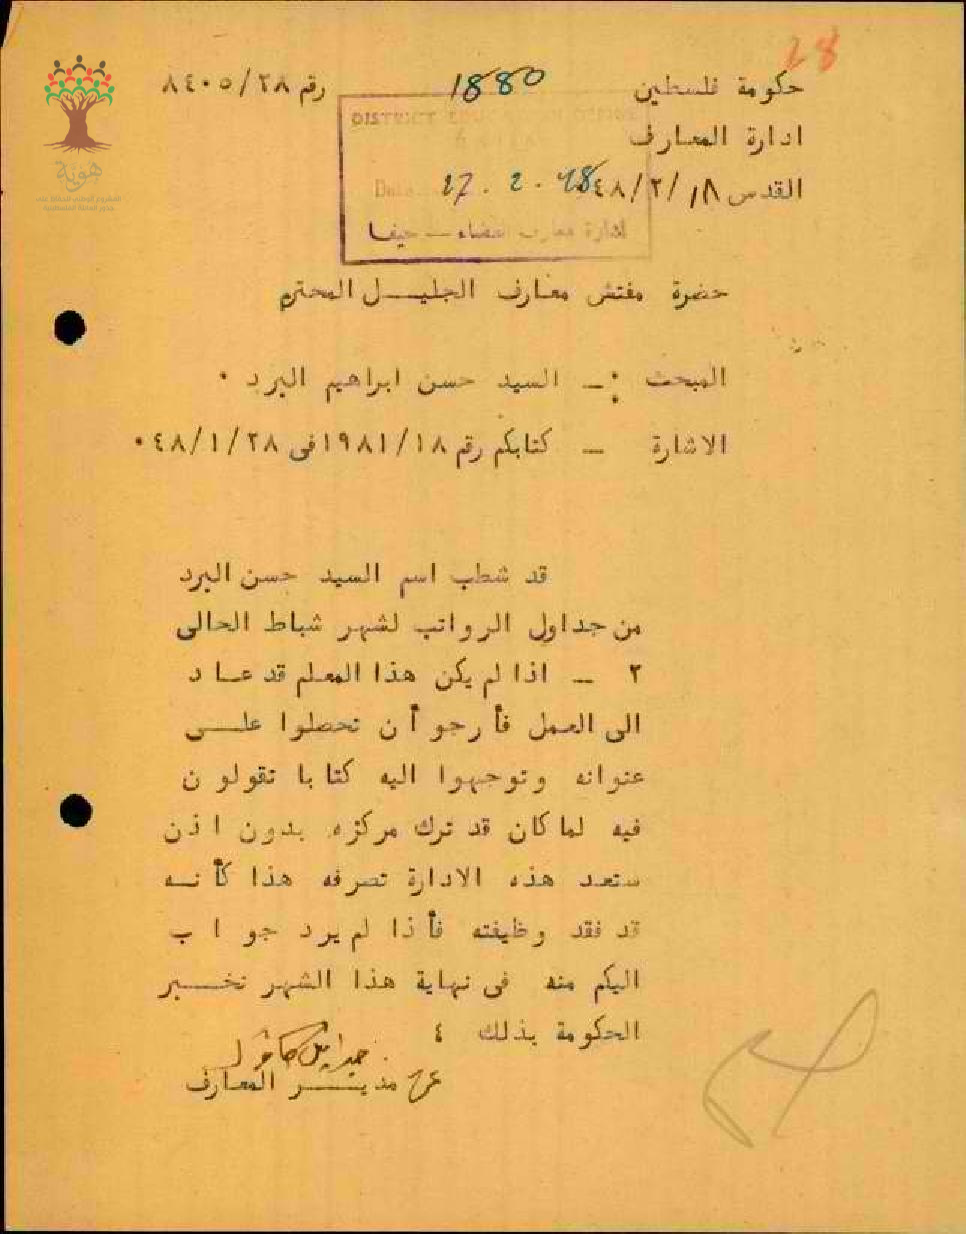 28
حكومة فلسطين
1880
رقم ٨٤٠٥/٢٨
ادارة المعارف
DISTRICT EDUCATION OFFICE
القدس ١٨/٢/٤٨
Date
27.2.48
حيفا
هوية
حضرة مفتش معارف الجليل المحترم
المبحث :ـ السيد حسن ابراهيم البرد ٠
الاشارة ـ كتابكم رقم ١٩٨١/١٨ فى ٤٨/١/٢٨٠
قد شطب اسم السيد حسن البرد
من جداول الرواتب لشهر شباط الحالى
٢ ـ اذا لم يكن هذا المعلم قد عاد
الى العمل فأرجو أن تحصلوا على
عنوانه وتوجهوا اليه كتابا تقولون
فيه لما كان قد ترك مركزه بدون اذن
ستعد هذه الادارة تصرفه هذا كأنه
قد فقد وظيفته فأذا لم يرد جواب
اليكم منه فى نهاية هذا الشهر نخبر
الحكومة بذلك ٤
عن مدير المعارف